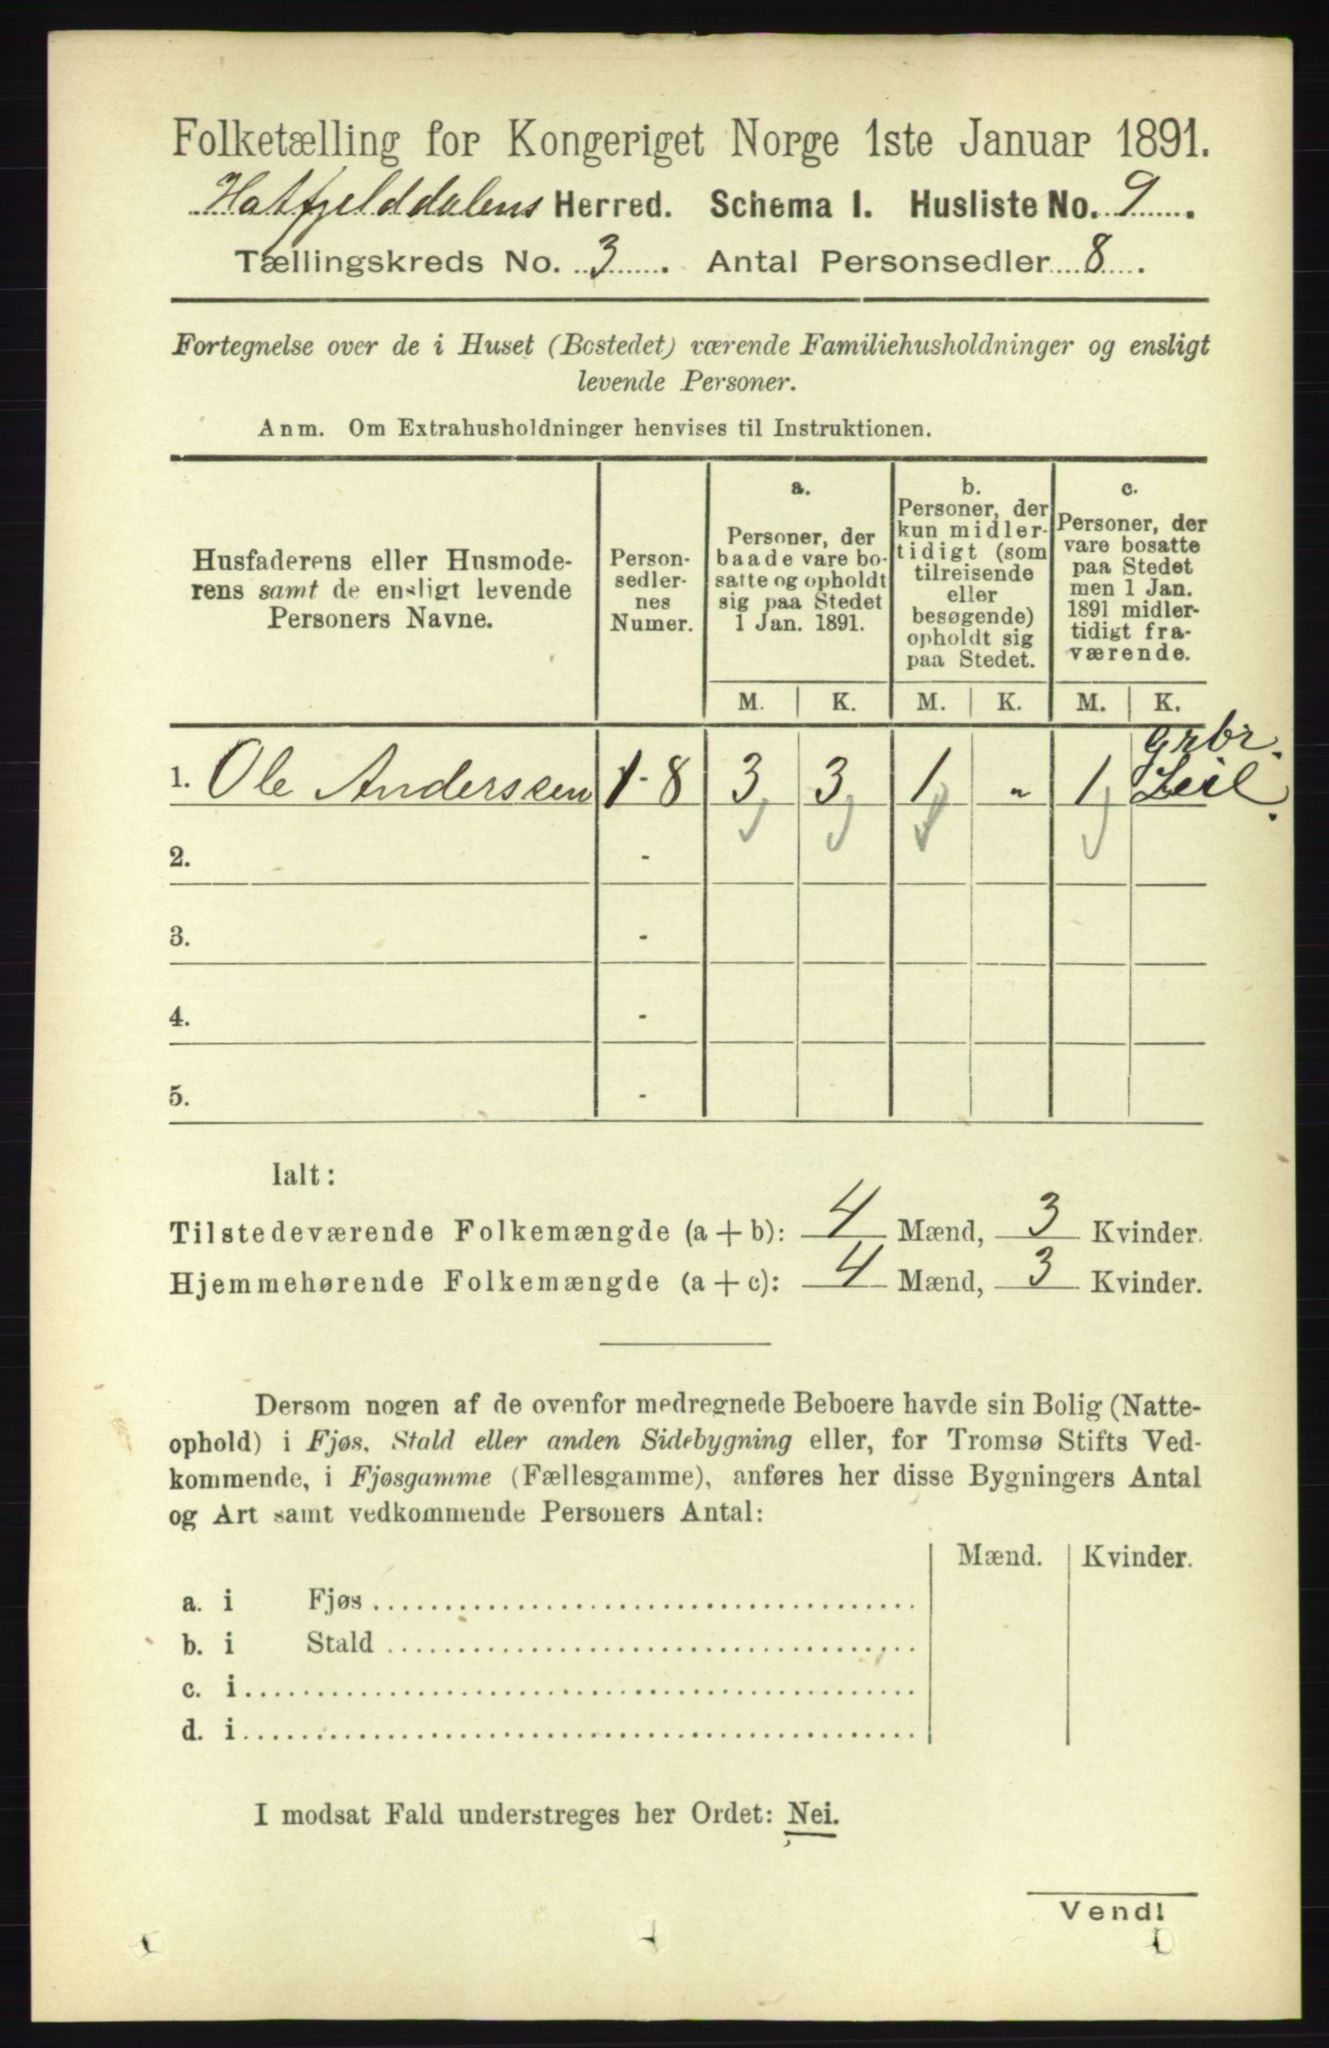 Folketælling for Kongeriget Norge 1ste Januar 1891.
Hatfjelddalens Herred. Schema I. Husliste No. 9.
Tællingskreds No. 3. Antal Personsedler 8.
Fortegnelse over de i Huset (Bostedet) værende Familiehusholdninger og ensligt
levende Personer.
Anm. Om Extrahusholdninger henvises til Instruktionen.
Husfaderens eller Husmode-
rens samt de ensligt levende
Personers Navne.
Person-
sedler-
nes
Numer.
a.
Personer, der
baade vare bo-
satte og opholdt
sig paa Stedet
1 Jan. 1891.
b.
Personer, der
kun midler-
tidigt (som
tilreisende
eller
besøgende)
opholdt sig
paa Stedet.
c.
Personer, der
vare bosatte
paa Stedet
men 1 Jan.
1891 midler-
tidigt fra-
værende.
M. K. M. K. M. K.
Grbr.
1. Ole Anderssen 1-8 3 3 1 „ 1 Leil.
2. -
3. -
4. -
5. -
Ialt:
Tilstedeværende Folkemængde (a+b): 4 Mænd, 3 Kvinder.
Hjemmehørende Folkemængde (a+c): 4 Mænd, 3 Kvinder.
Dersom nogen af de ovenfor medregnede Beboere havde sin Bolig (Natte-
ophold) i Fjøs, Stald eller anden Sidebygning eller, for Tromsø Stifts Ved-
kommende, i Fjøsgamme (Fællesgamme), anføres her disse Bygningers Antal
og Art samt vedkommende Personers Antal:
Mænd. Kvinder.
a. i Fjøs
b. i Stald
c. i
d. i
I modsat Fald understreges her Ordet: Nei.
Vend!